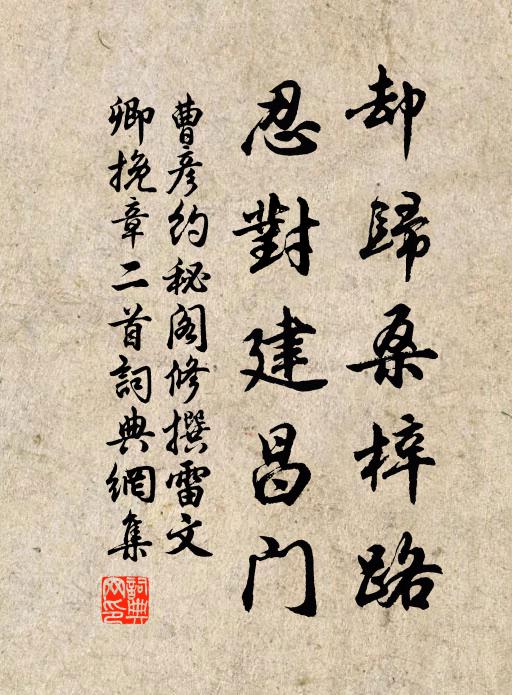 却歸桑梓路
忍對建昌門
曹彦約秘閣修撰雷文
卿挽章二首詞典網集
詞典
网印